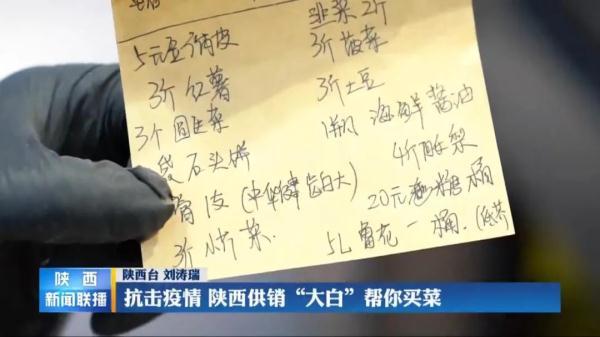 5元豆腐皮
3斤红薯
3个圆
袋石头饼
膏1支(中华健齿白大)
3斤小菜.
韭菜2斤
3斤菠菜
3斤土豆
1瓶海鲜酱油
4斤酥梨
20元
5L鲁花一桶.
陕西
新闻联播
陕西台 刘涛瑞
抗击疫情 陕西供销“大白”帮你买菜